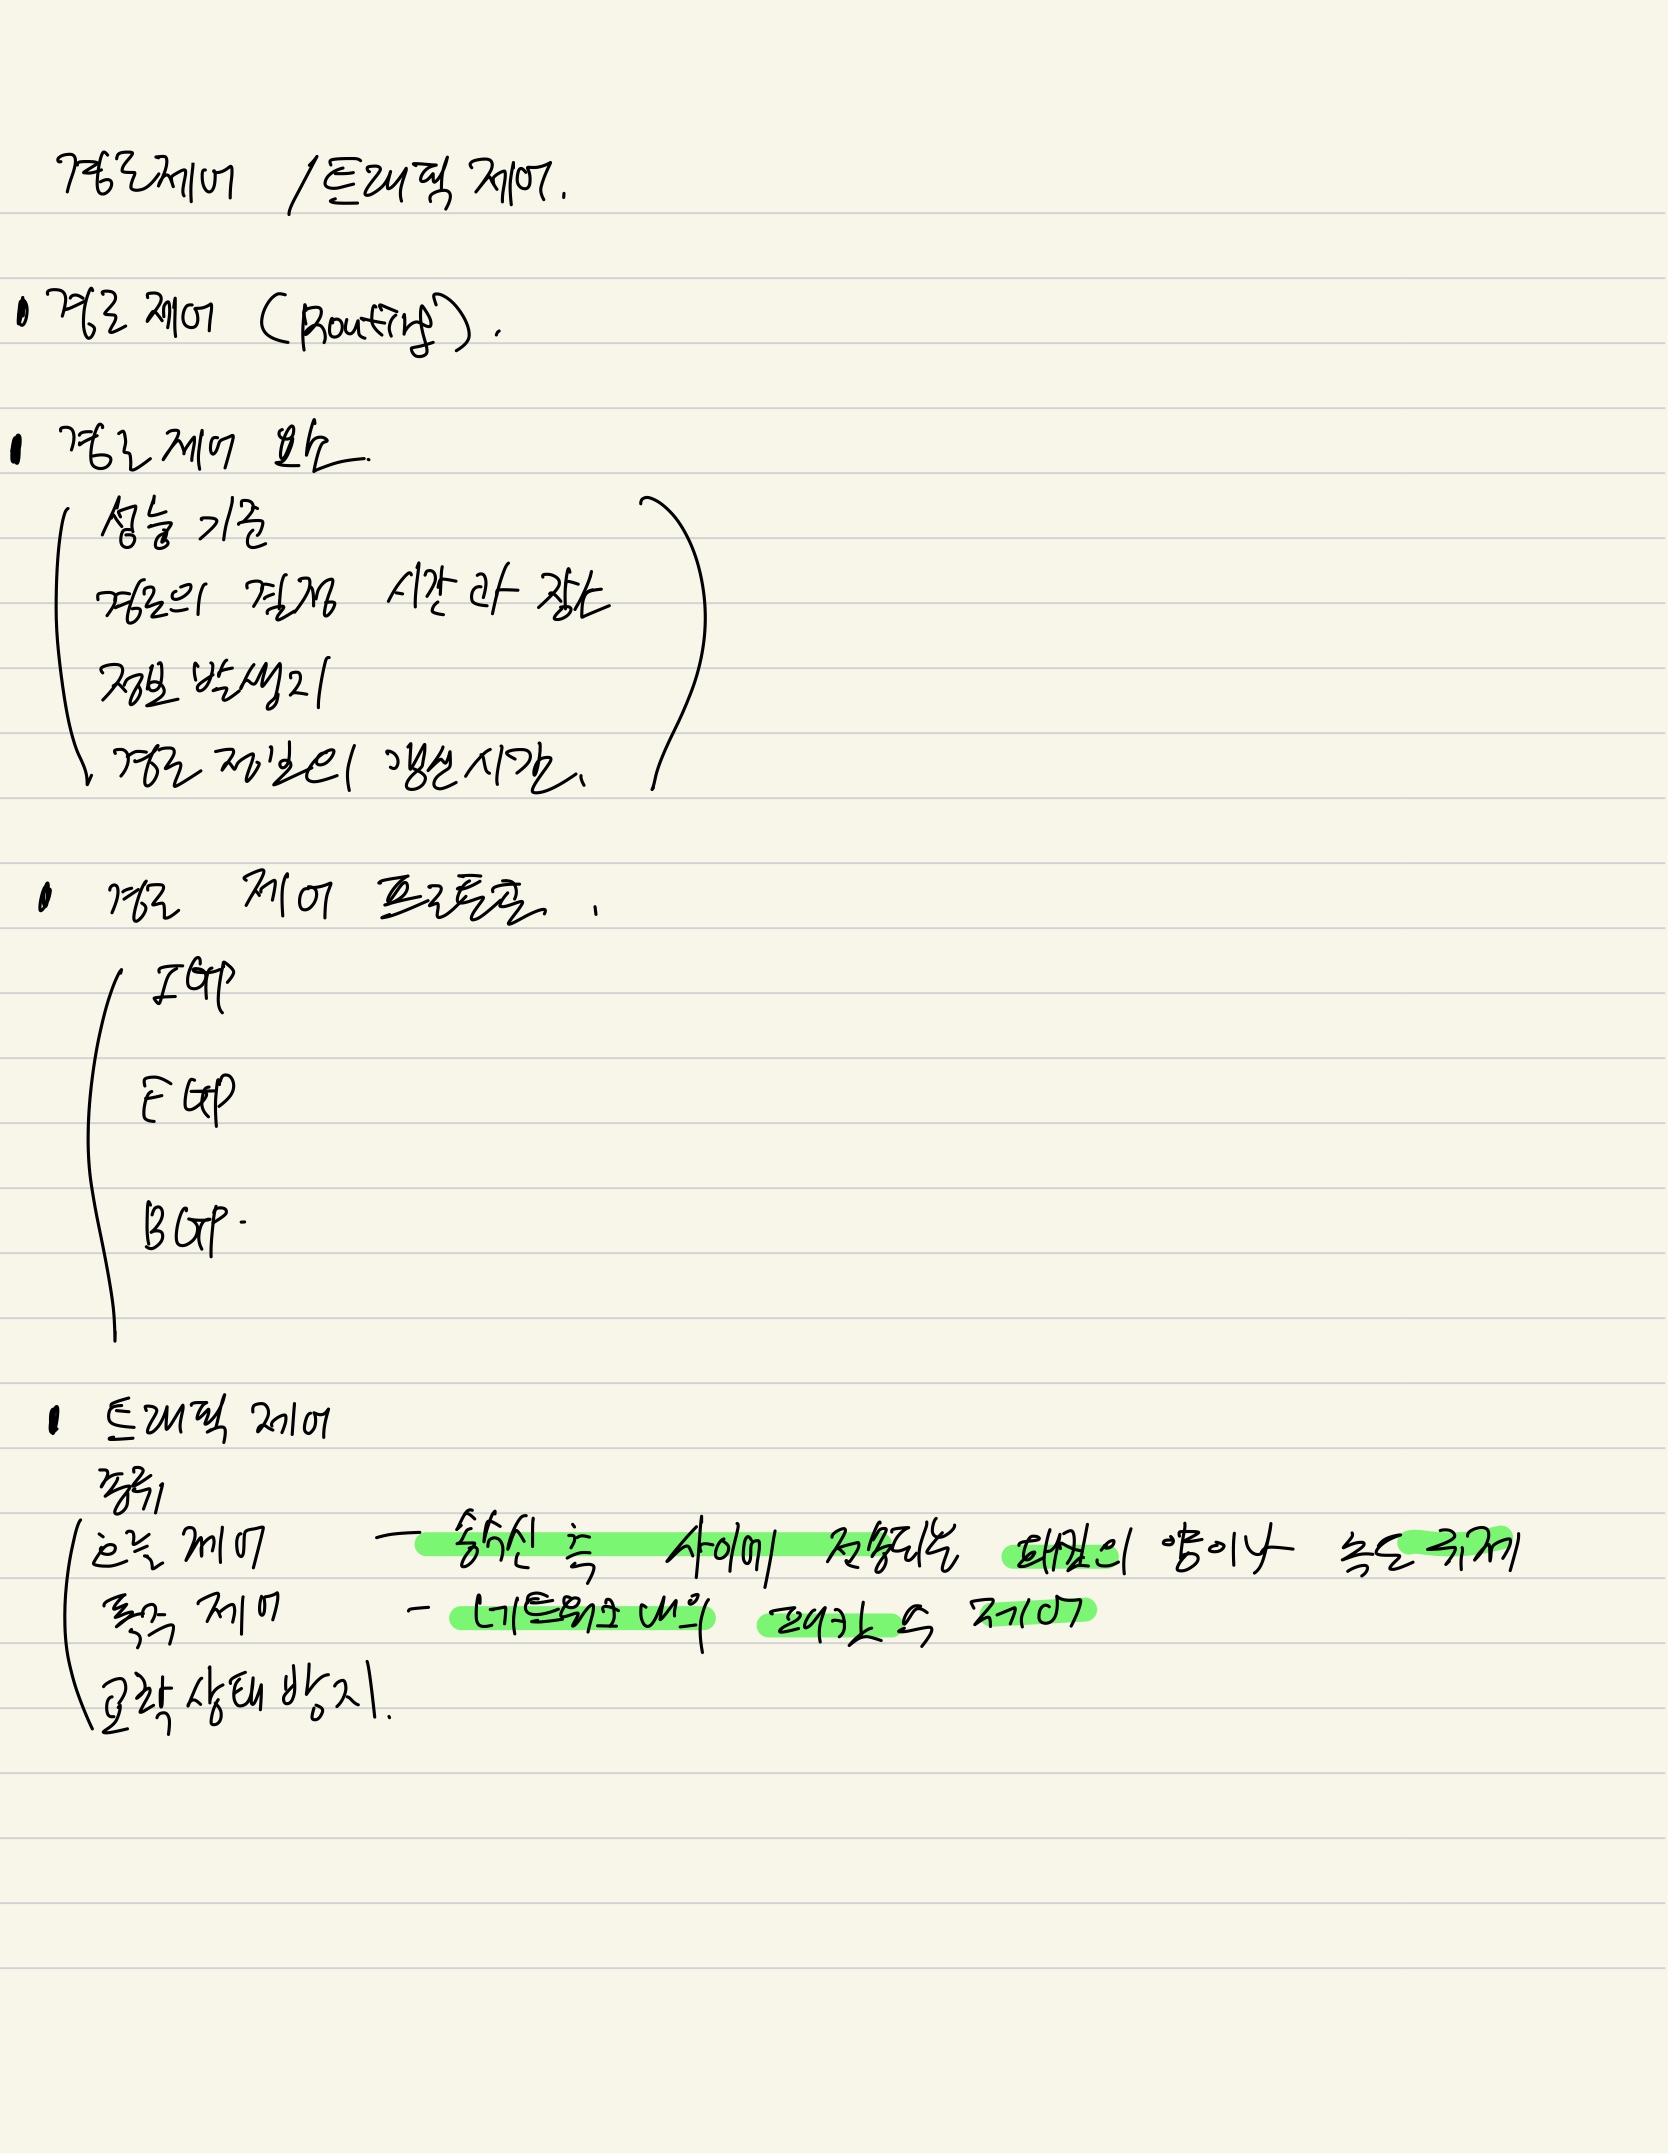 경로제어 / 트래픽 제어.
경로 제어 (Routing).
경로 제어 요소.
성능 기준
경로의 결정 시간과 장소
정보 발생지
경로 정보의 갱신시간.
경로 제어 프로토콜.
IGP
EGP
BGP.
트래픽 제어
종류
흐름 제어 - 송수신 측 사이에 전송되는 패킷의 양이나 속도 규제
폭주 제어 - 네트워크 내의 패킷 수 제어
교착 상태 방지.